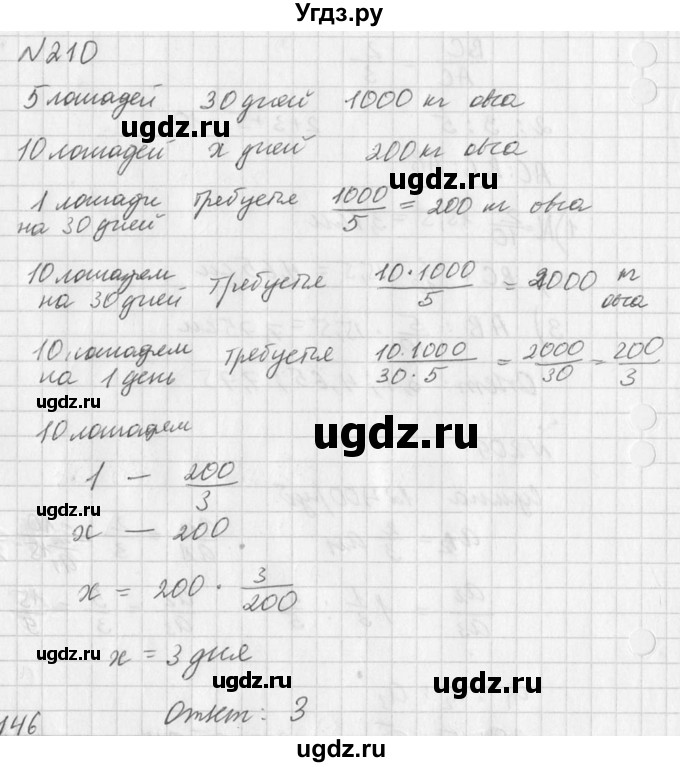 Угдз.ру
№210
5 лошадей 30 дней 1000 кг овса
ugdz.ru
10 лошадей x дней 200 кг овса
ugdz.ru
1 лошади требуется 1000/5 = 200 кг овса
на 30 дней
10 лошадям требуется 10·1000/5 = 2000 кг
на 30 дней овса
10 лошадям требуется 10·1000/30·5 = 2000/30 = 200/3
на 1 день
ugdz.ru
ugdz.ru
10 лошадям
ugdz.ru
1 — 200/3
ugdz.ru
x — 200
x = 200 · 3/200
ugdz.ru
x = 3 дня
ugdz.ru
ugdz.ru
Ответ: 3
146
ugdz.ru